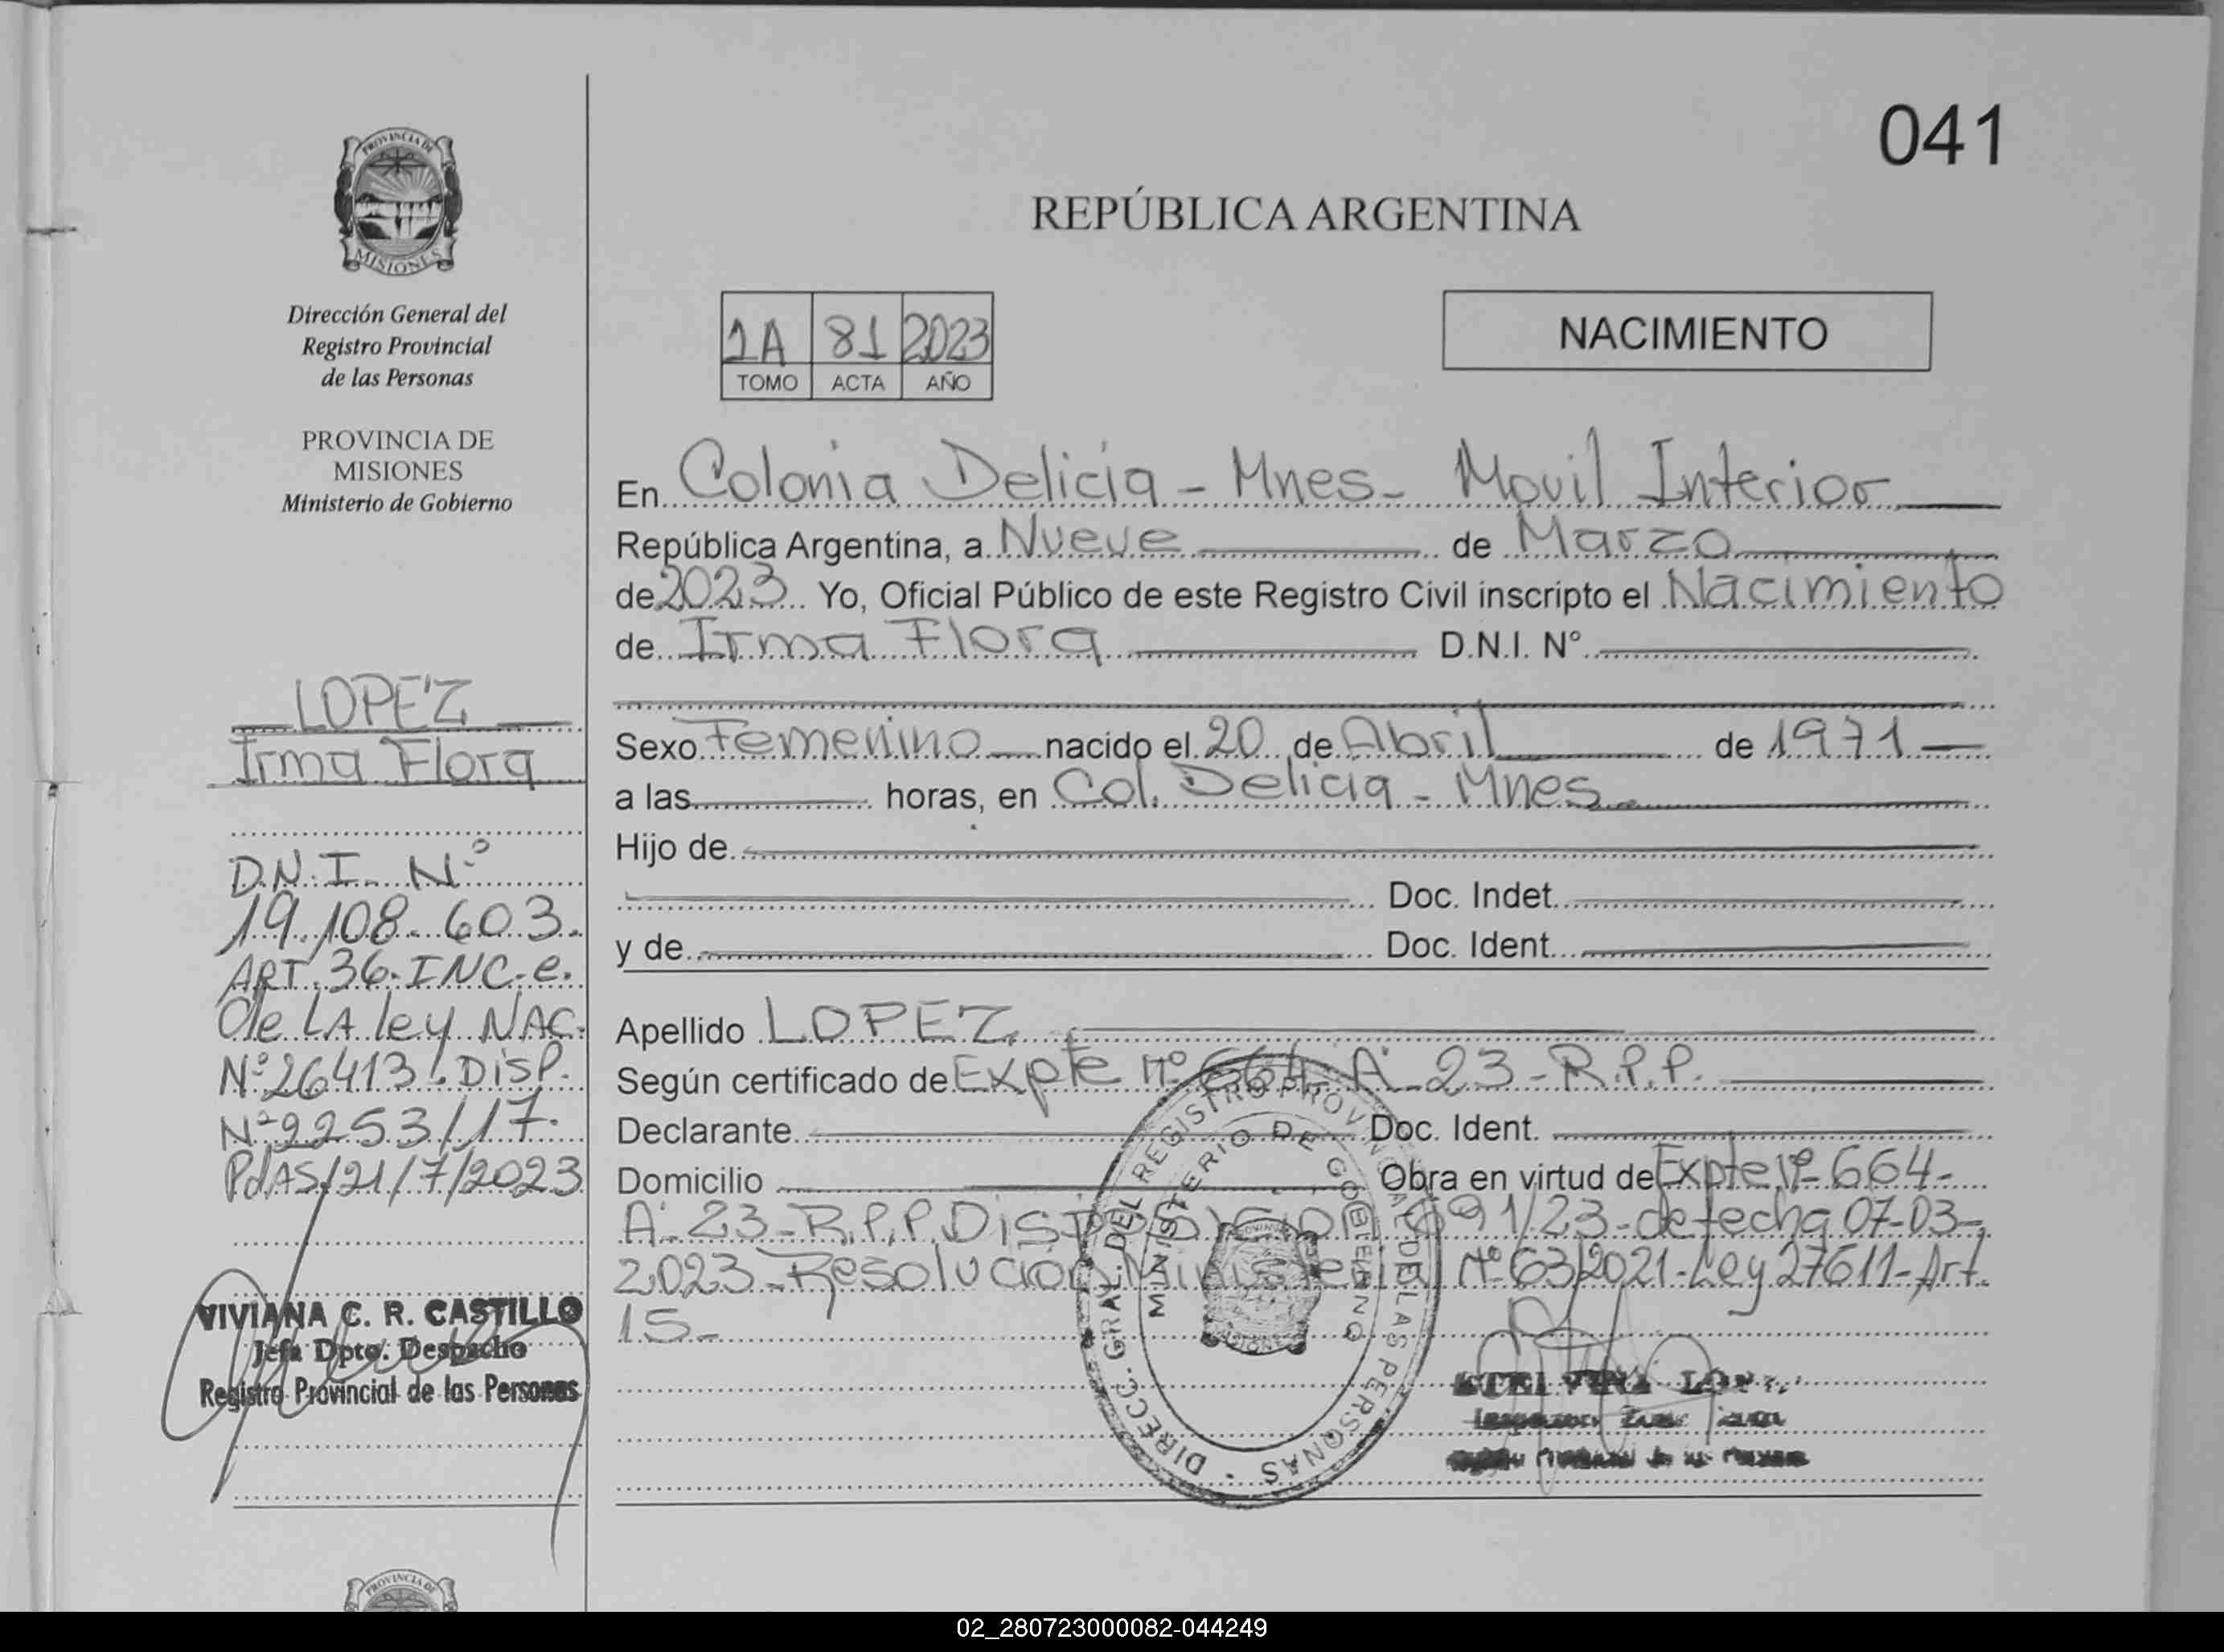 041
PROVINCIA DE
MISIONES
Dirección General del
Registro Provincial
de las Personas
PROVINCIA DE
MISIONES
Ministerio de Gobierno
LOPEZ
Irma Flora
D.N.I. Nº
19.108.603.
ART. 36. INC. e.
de LA ley NAC.
Nº 26413. DISP.
Nº 2253/17.
PdAS/21/7/2023
VIVIANA C. R. CASTILLO
Jefa Dpto. Despacho
Registro Provincial de las Personas
REPÚBLICA ARGENTINA
1A 81 2023
TOMO ACTA AÑO
NACIMIENTO
En Colonia Delicia - Mnes - Movil Interior
República Argentina, a Nueve de Marzo
de 2023 Yo, Oficial Público de este Registro Civil inscripto el Nacimiento
de Irma Flora D.N.I. Nº
Sexo Femenino nacido el 20 de Abril de 1971
a las horas, en Col. Delicia - Mnes
Hijo de
Doc. Indet.
y de Doc. Ident.
Apellido LOPEZ
Según certificado de Expte nº 664 - A - 23 - R.P.P.
Declarante Doc. Ident.
Domicilio Obra en virtud de Expte nº 664-
A - 23 - R.P.P. Disposición 691/23 - de fecha 07-03-
2023 - Resolución Ministerial Nº 63/2021 - Ley 27611 - Art.
15 -
DIRECC. GRAL. DEL REGISTRO PROVINCIAL DE LAS PERSONAS
MINISTERIO DE GOBIERNO
PROVINCIA DE
02_280723000082-044249